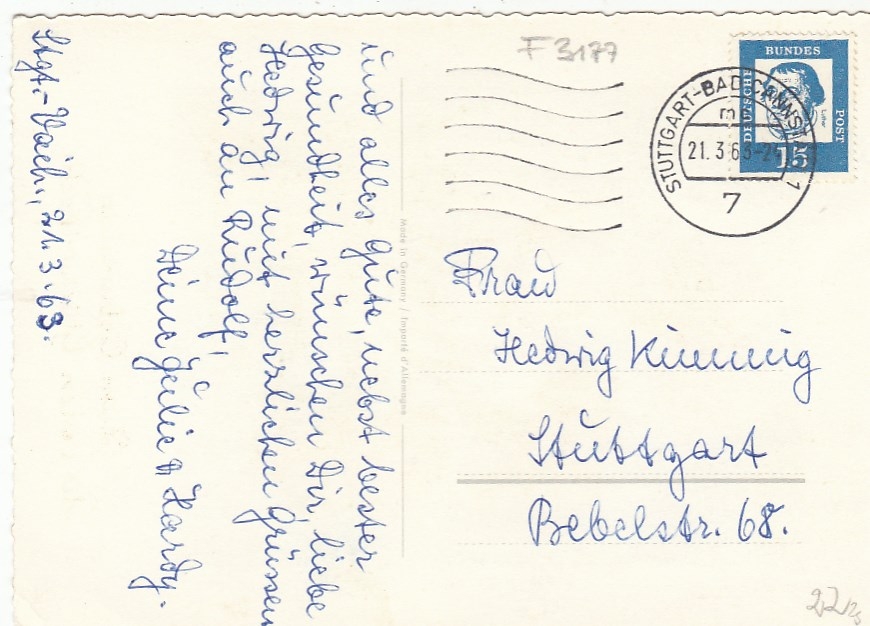 Stgt.-Vaih., 21.3.63.
und alles Gute, nebst bester
Gesundheit, wünschen Dir, liebe
Hedwig, mit herzlichen Grüssen
auch an Rudolf,
Deine
Hardy.
Made in Germany / Importé d'Allemagne
F 3177
BUNDES
DEUTSCHE
POST
15
STUTTGART-BAD CANNSTATT 1
m
21. 3.63-21
7
Frau
Hedwig Kimmig
Stuttgart
Bebelstr. 68.